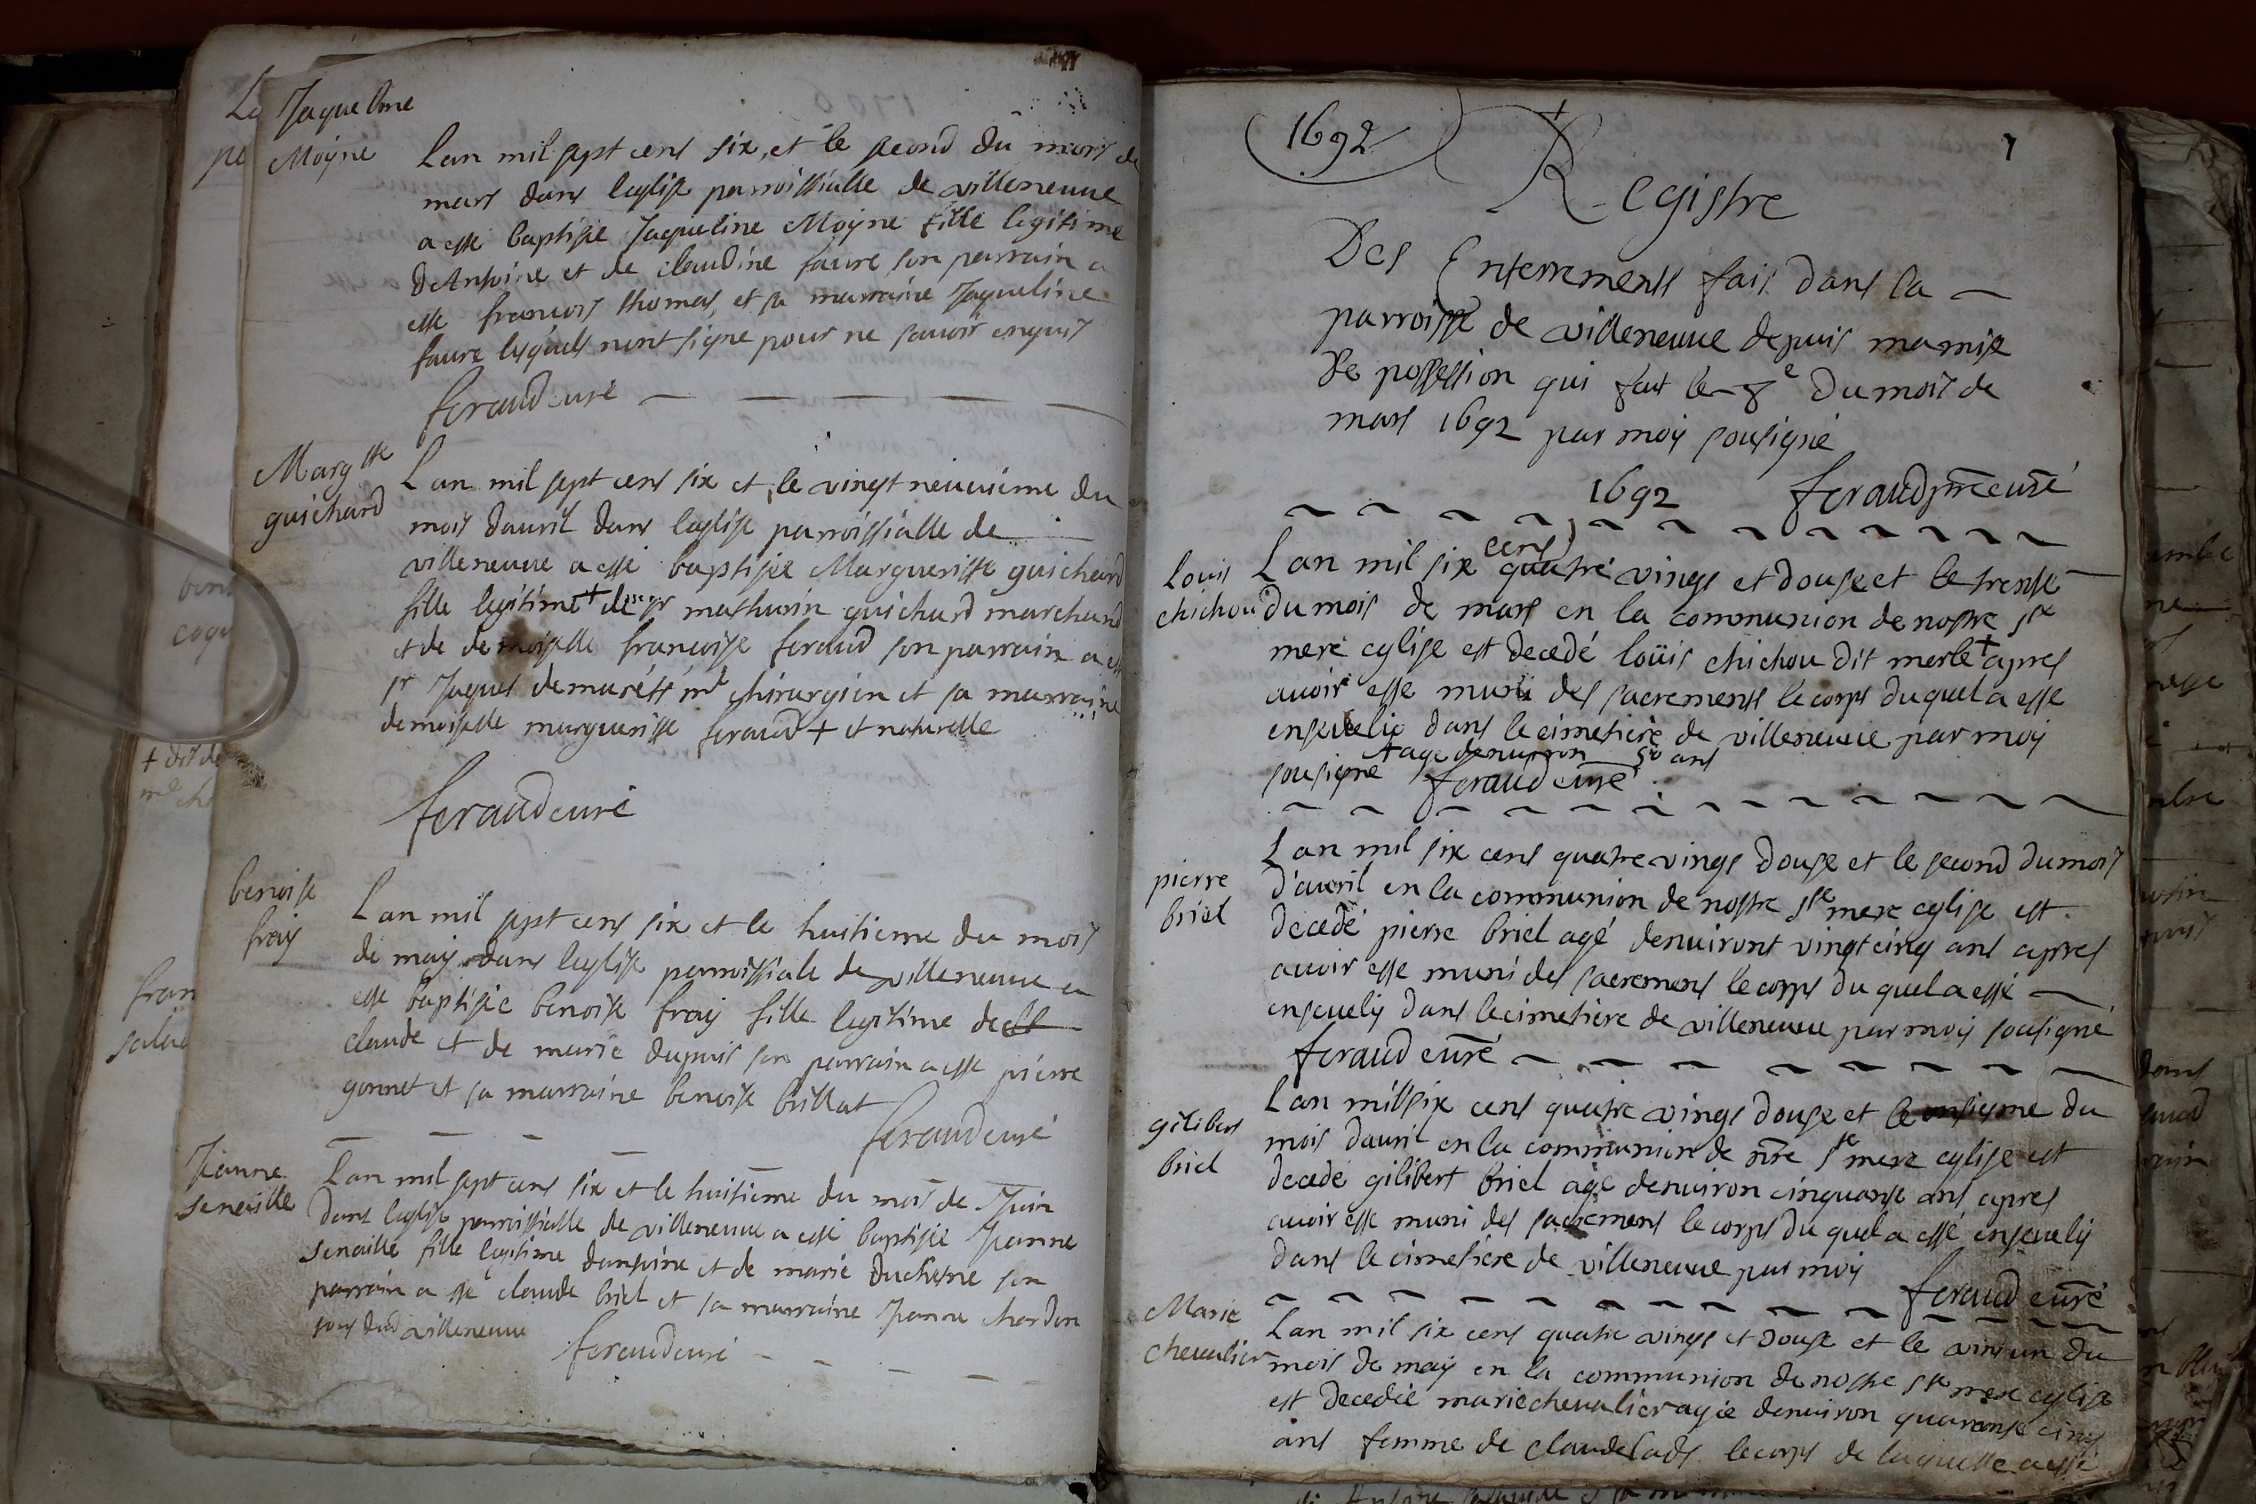 Jaqueline
Moyne
Lan mil sept cens six, et le second du mois de
mars dans leglise parroissialle de villeneuve
a esté baptisée Jaqueline Moyne fille legitime
dAntoine et de claudine faure son parrain a
esté francois thomas, et sa marraine Jaqueline
faure lesquels nont signe pour ne savoir enquis
feraud curé
Margtte
guichard
Lan mil sept cens six et le vingt neuvieme du
mois davril dans leglise parroissialle de
villeneuve a esté baptisée Margueritte guichard
fille legitime + de sr mathurin guichard marchand
et de demoiselle francoise feraud son parrain a esté
sr Jaques demarétt md chirurgien et sa marraine
demoiselle margueritte feraud + et naturelle
feraud curé
benoite
fray
Lan mil sept cens six et le huitieme du mois
de may dans leglise parroissiale de villeneuve a
esté baptisée benoite fray fille legitime de
claude et de marie dupuis son parrain a esté pierre
gonnet et sa marraine benoite brillat
feraud curé
Jeanne
seneville
Lan mil sept cens six et le huitieme du mois de Juin
dans leglise parroissialle de villeneuve a esté baptisée Jeanne
senaille fille legitime dantoine et de marie duchesne son
parrain a esté claude briel et sa marraine Jeanne chardon
tous dud villeneuve
feraud curé
+ dit de
fran
1692
7
Registre
Des Enterrements fais dans la
parroisse de villeneuve depuis ma mise
de possession qui fut le 8e du mois de
mars 1692 par moy sousigné
1692 feraud prre curé
Louis
chichou
Lan mil six cens quatre vings et douse et le trente
du mois de mars en la communion de nostre ste
mere eglise est decedé loüis chichou dit merle + apres
avoir esté muni des sacrements le corps du quel a esté
ensevelie dans le cimetiere de villeneuve par moy
sousigné + age denviron 50 ans
feraud curé
pierre
briel
Lan mil six cens quatre vings douse et le second du mois
d'avril en la communion de nostre ste mere eglise est
decedé pierre briel agé denviront vingt cinq ans apres
avoir esté muni des sacremens le corps du quel a esté
ensevely dans le cimetiere de villeneuve par moy sousigné
feraud curé
gilibert
briel
Lan mil six cens quatre vings douse et le onsieme du
mois davril en la communion de nre ste mere eglise est
decedé gilibert briel agé denviron cinquante ans apres
avoir esté muni des sacremens le corps du quel a esté ensevely
dans le cimetiere de villeneuve par moy
feraud curé
Marie
chevalier
Lan mil six cens quatre vings et douse et le vint un du
mois de may en la communion de nostre ste mere eglise
est decedée marie chevalier agée denviron quarante cinq
ans femme de claude lads le corps de laquelle a esté